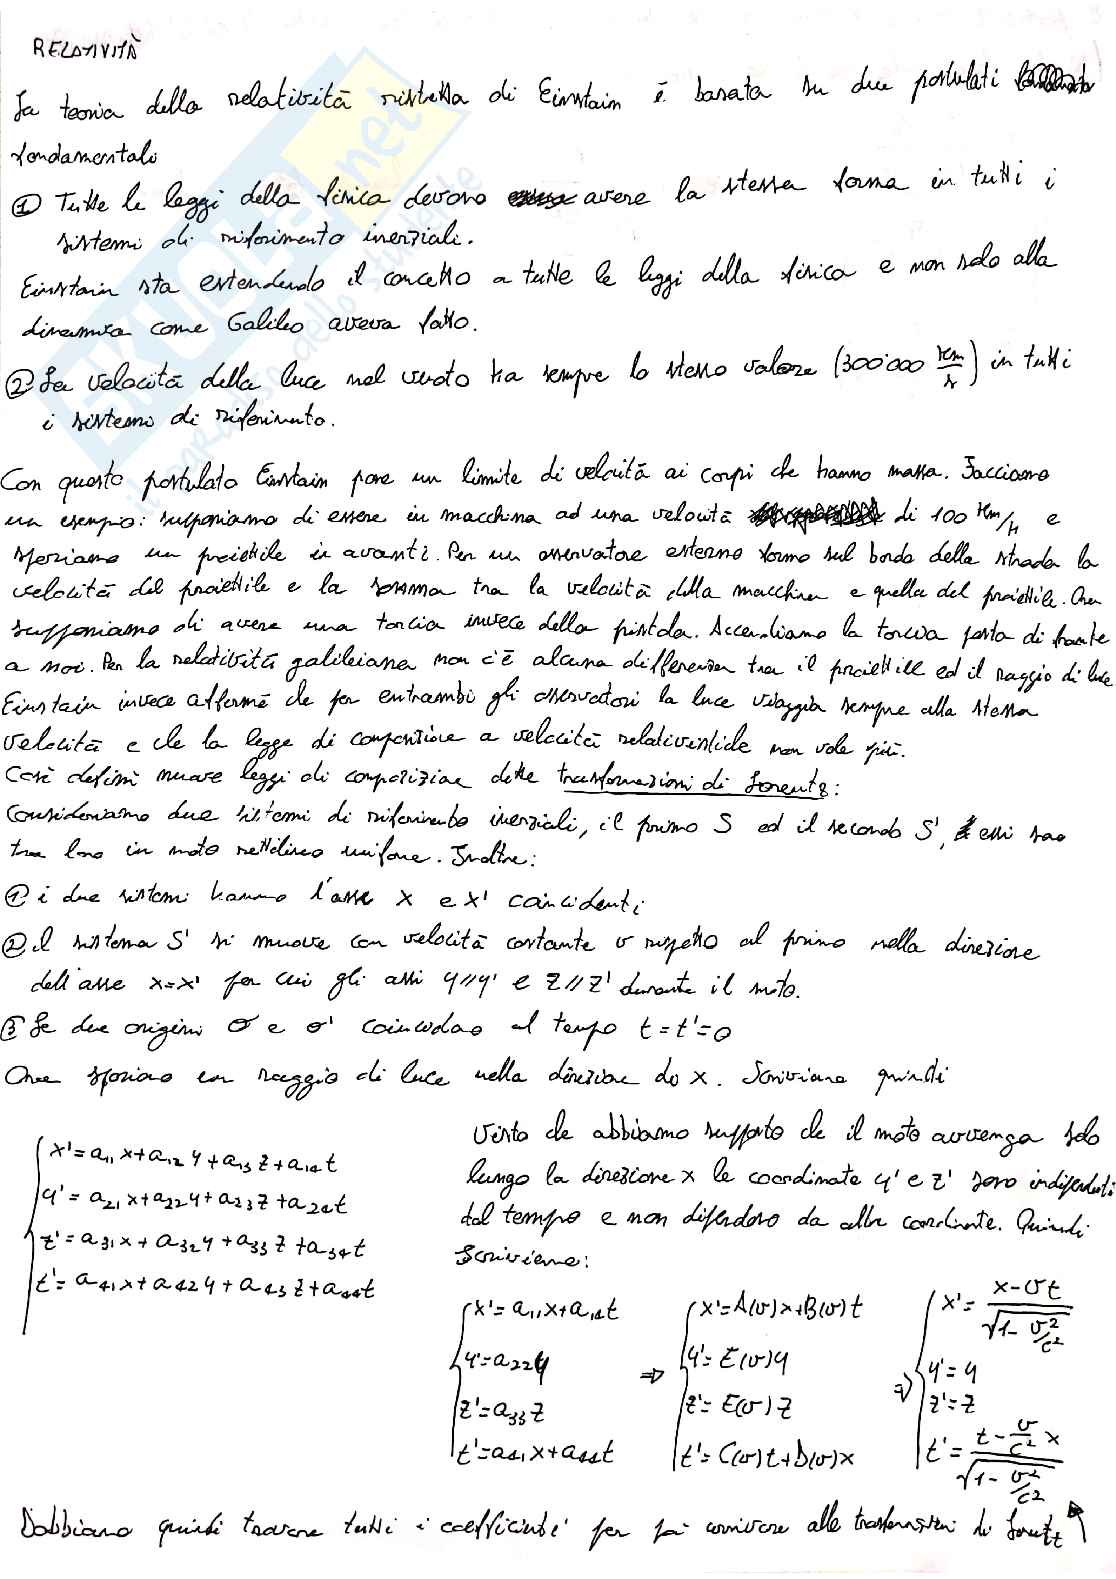 RELATIVITÀ
La teoria della relatività ristretta di Einstain è basata su due postulati
fondamentali
① Tutte le leggi della fisica devono avere la stessa forma in tutti i
sistemi di riferimento inerziali.
Einstain sta estendendo il concetto a tutte le leggi della fisica e non solo alla
dinamica come Galileo aveva fatto.
② La velocità della luce nel vuoto ha sempre lo stesso valore (300'000 km/s) in tutti
i sistemi di riferimento.
Con questo postulato Einstain pone un limite di velocità ai corpi che hanno massa. Facciamo
un esempio: supponiamo di essere in macchina ad una velocità di 100 Km/h e
spariamo un proiettile in avanti. Per un osservatore esterno fermo sul bordo della strada la
velocità del proiettile e la somma tra la velocità della macchina e quella del proiettile. Ora
supponiamo di avere una torcia invece della pistola. Accendiamo la torcia posta di fronte
a noi. Per la relatività galileiana non c'è alcuna differenza tra il proiettile ed il raggio di luce
Einstain invece affermò che per entrambi gli osservatori la luce viaggia sempre alla stessa
velocità e che la legge di composizione a velocità relativistiche non vale più.
Così definì nuove leggi di composizione dette trasformazioni di Lorentz:
Consideriamo due sistemi di riferimento inerziali, il primo S ed il secondo S', essi sono
tra loro in moto rettilineo uniforme. Inoltre:
① i due sistemi hanno l'asse x e x' coincidenti
② il sistema S' si muove con velocità costante v rispetto al primo nella direzione
dell'asse x=x' per cui gli assi y//y' e z//z' durante il moto.
③ Le due origini O e O' coincidono al tempo t=t'=0
Ora spariamo un raggio di luce nella direzione di x. Scriviamo quindi
x'=a₁₁x+a₁₂y+a₁₃z+a₁₄t
y'=a₂₁x+a₂₂y+a₂₃z+a₂₄t
z'=a₃₁x+a₃₂y+a₃₃z+a₃₄t
t'=a₄₁x+a₄₂y+a₄₃z+a₄₄t
Visto che abbiamo supposto che il moto avvenga solo
lungo la direzione x le coordinate y' e z' sono indipendenti
dal tempo e non dipendono da altre coordinate. Quindi
Scriviamo:
x'=a₁₁x+a₁₄t
y'=a₂₂y
z'=a₃₃z
t'=a₄₁x+a₄₄t
⇒
x'=A(v)x+B(v)t
y'=E(v)y
z'=E(v)z
t'=C(v)t+D(v)x
⇒
x'=(x-vt)/√(1-v²/c²)
y'=y
z'=z
t'=(t-v/c² x)/√(1-v²/c²)
Dobbiamo quindi trovare tutti i coefficienti per poi arrivare alle trasformazioni di Lorentz
SKUOLA.net